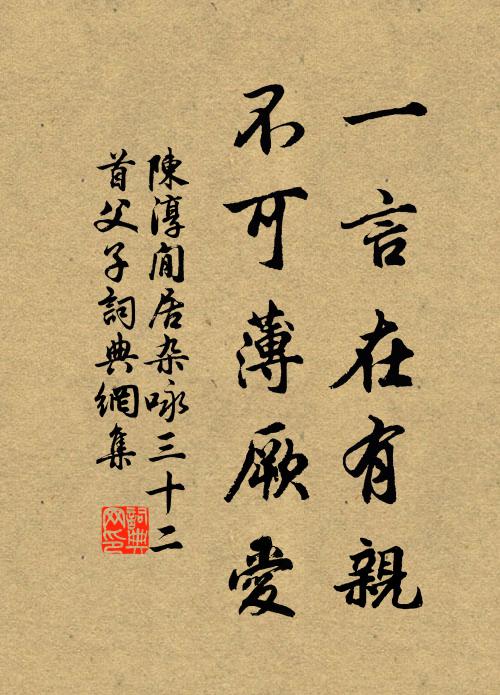 一言在有親
不可薄厥愛
陳淳閒居杂咏三十二
首父子詞典網集
詞典網印